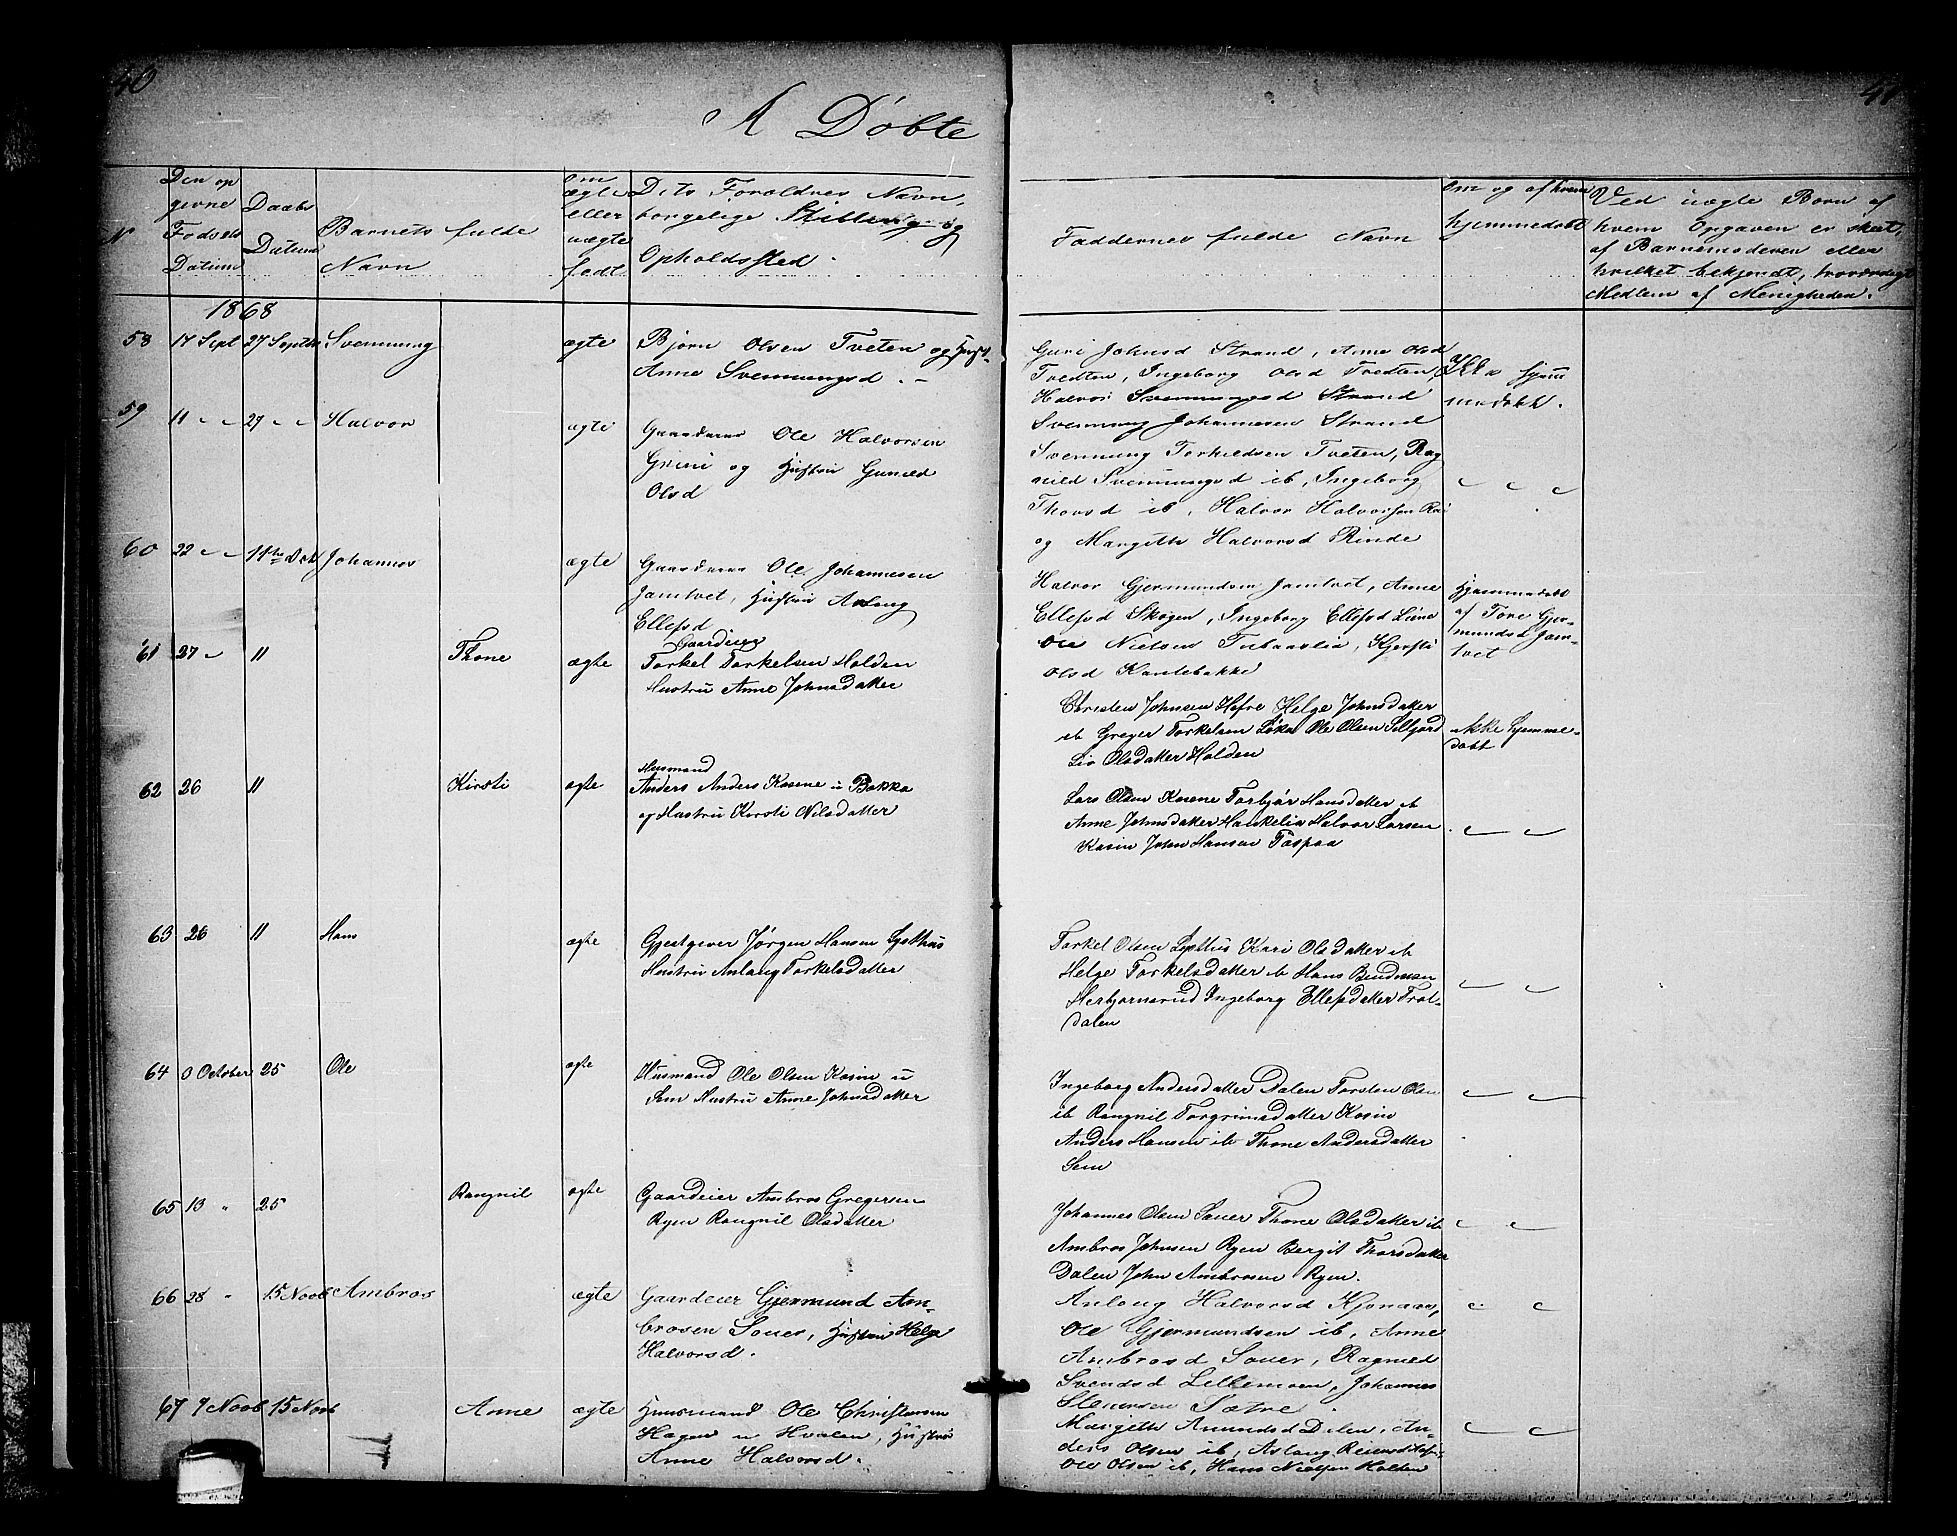 40
A Döbte
41
N
Den op
givne
Fødsels
Datum
Daabs
Datum
Barnets fulde
Navn
om
ægte
eller
uægte
født
Dets Forældres Navn,
borgelige Stilling og
Opholdssted.
Faddernes fulde Navn
Om og af hvem
hjemmedøbt
Ved uægte Børn af
hvem Opgaven er skeet,
af Barnemoderen eller
hvilket bekjendt, troværdigt
Medlem af Menigheden.
1868
58 17 Sept 27 Septbr Svennung ægte Bjørn Olsen Tveten og Hust-
Anne Svennungsd. -
Guri Johnsd Strand, Anne Olsd
Tvedten, Ingeborg Olsd Tvedten,
Halvor Svenningsd Strand
Svennung Johannesen Strand
Ikke hjem
medøbt.
59 11 " " 27 " " Halvor ægte Gaardman Ole Halvorsen
Grini og Hustru Gunild
Olsd
Svennung Torkildsen Tveten, Rag
nild Svennungsd ib, Ingeborg
Thorsd ib, Halvor Halvorsen
og Margith Halvorsd Rinde
60 22 " " 11te Oct Johannes ægte Gaardman Ole Johannesen
Jamtvet, Hustru Aslaug
Ellefsd
Halvor Gjermundsen Jamtvet, Anne
Ellefsd Skogen, Ingeborg Ellefsd
Ole Nielsen Tubaaslia, Kjersti
Olsd Kantebakke
Hjemmedøbt
af Tore Gjer-
mundsd Jam-
tvet
61 27 " 11 Thone ægte Gaardeier
Torkel Torkelsen Holden
Hustru Anne Johnsdatter
Christen Johnsen Hofre Helge Johnsdatter
ib Greger Torkelsen Løka Ole Olsen Selljord
Liv Olsdatter Holden
Ikke hjemme-
døbt
62 26 11 Kirsti ægte Husmand
Anders Anders Kasene u Bakka
og Hustru Kirsti Nilsdatter
Lars Olsen Kasene Torbjør Hansdatter ib
Anne Johnsdatter Haukelia Halvor Larsen
Kasin John Hansen Taspaa
63 26 11 Hans ægte Gjestgiver Jørgen Hansen Lysthus
Hustru Anlaug Torkelsdatter
Torkel Olsen Lysthus Kari Olsdatter ib
Helge Torkelsdatter ib Hans Bendixsen
Herbjørnsrud Ingeborg Ellefsdatter Trol-
dalen
64 0 October 25 Ole ægte Husmand Ole Olsen Kasin u
Sem Hustru Anne Johnsdatter
Ingeborg Andersdatter Dalen Torsten Olsen
ib Rangnil Torgrimsdatter Kosin
Anders Hansen ib Thone Andersdatter
Sem
65 13 " 25 Rangnil ægte Gaardeier Ambros Gregersen
Ryen Rangnil Olsdatter
Johannes Olsen Sauer Thone Olsdatter ib
Ambros Johnsen Ryen Bergit Thorsdatter
Dalen John Ambrosen Ryen.
66 28 " 15 Novb Ambros ægte Gaardeier Gjermund Am-
brosen Sauer, Hustru Helge
Halvorsd.
Anlaug Halvorsd Kjonaas,
Ole Gjermundsen ib, Anne
Ambrosd Sauer, Ragnild
Svendsd Lillemoen, Johannes
Stensen Sætre.
67 7 Novb 15 Novb Anne ægte Huusmand Ole Christensen
Hagen u Hvalen, Hustru
Anne Halvorsd.
Margith Amundsd Dalen, An-
ders Olsen ib, Aslaug
Ole Olsen ib, Hans Nielsen Holten